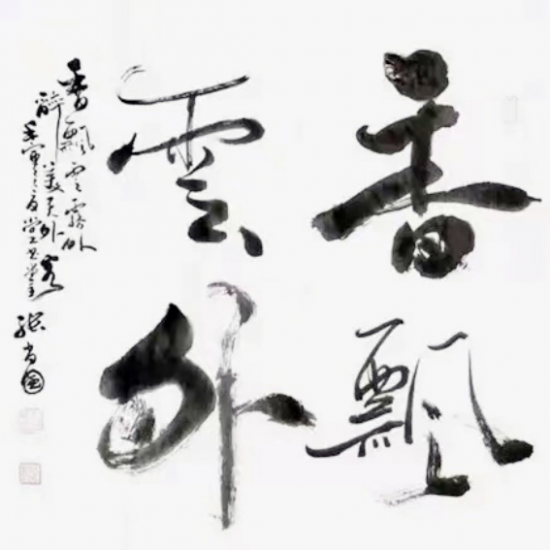 香飄
雲外
香飄雲霧外
醉美天外客
壬寅之夏
張尚國